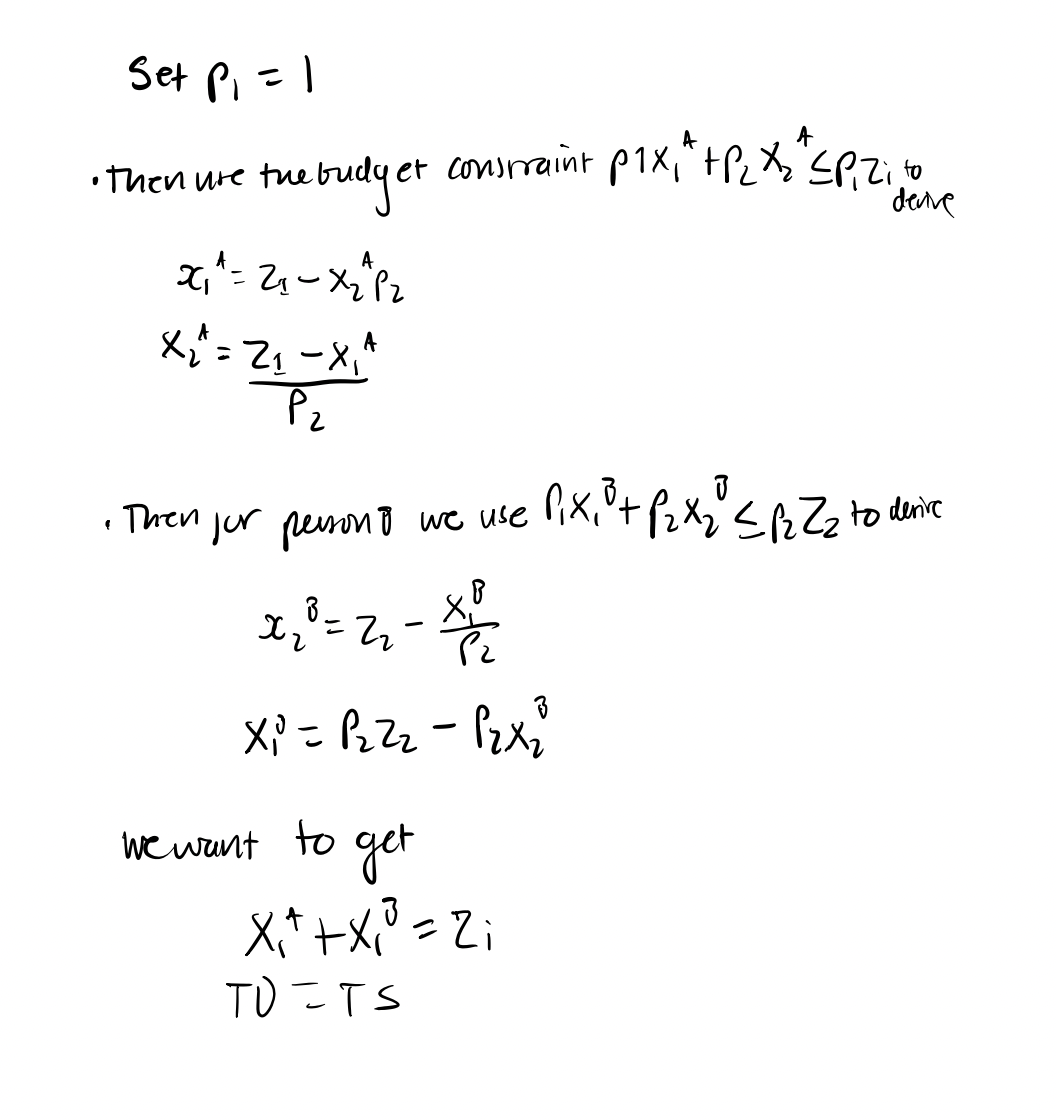 Set P₁ = 1
• Then use the budget constraint p1x₁ᴬ + p₂x₂ᴬ ≤ p₁z₁ to
derive
x₁ᴬ = z₁ − x₂ᴬp₂
x₂ᴬ = (z₁ − x₁ᴬ) / p₂
• Then for person B we use p₁x₁ᴮ + p₂x₂ᴮ ≤ p₂z₂ to derive
x₂ᴮ = z₂ − x₁ᴮ / p₂
x₁ᴮ = p₂z₂ − p₂x₂ᴮ
we want to get
x₁ᴬ + x₁ᴮ = z₁
TD = TS